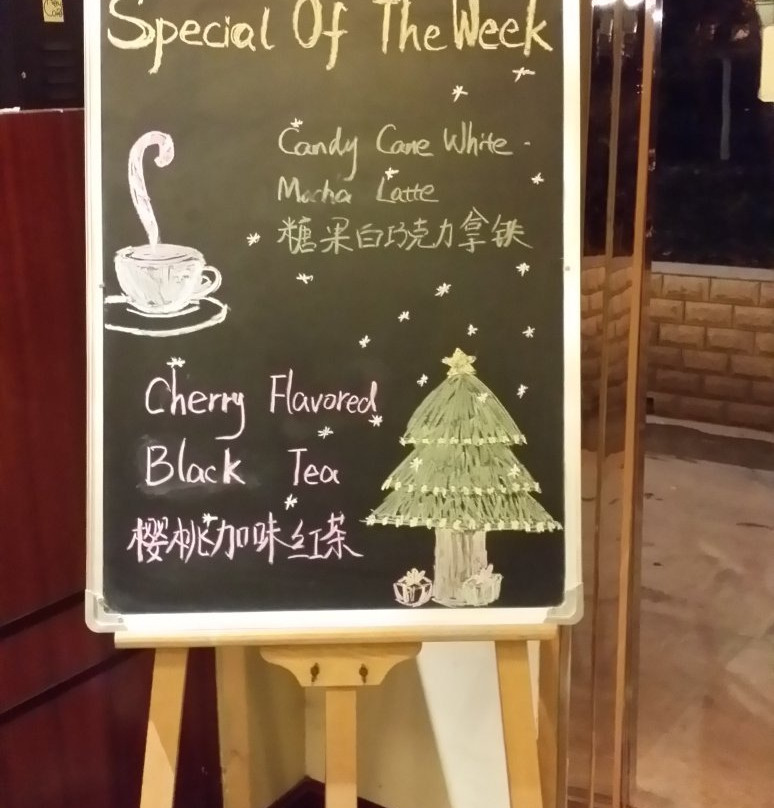 Special Of The Week
Candy Cane White -
Mocha Latte
糖果白巧克力拿铁
Cherry Flavored
Black Tea
樱桃加味红茶